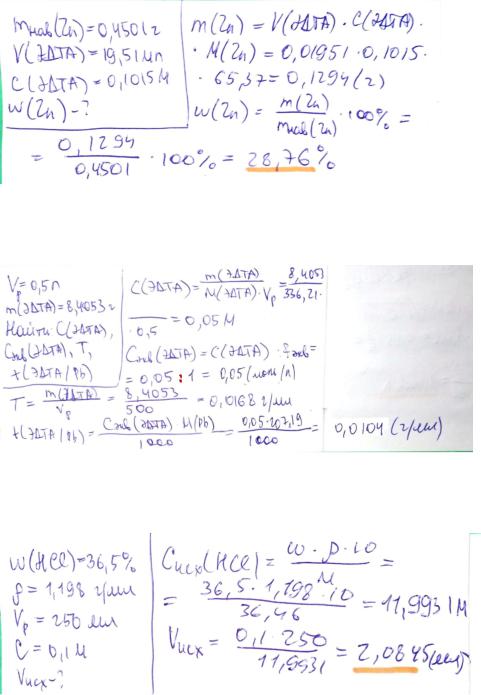 mнав(Zn)=0,4501г
V(ЭДТА)=19,51мл
C(ЭДТА)=0,1015М
w(Zn)-?
m(Zn)=V(ЭДТА)·C(ЭДТА)·
·M(Zn)=0,01951·0,1015·
·65,37=0,1294(г)
w(Zn)=m(Zn)/mнав(Zn)·100%=
=0,1294/0,4501·100%=28,76%
Vр=0,5л
m(ЭДТА)=8,4053г
Найти C(ЭДТА),
Cэкв(ЭДТА), T,
t(ЭДТА/Pb)
C(ЭДТА)=m(ЭДТА)/M(ЭДТА)·Vр=8,4053/336,21·
·0,5=0,05М
Cэкв(ЭДТА)=C(ЭДТА)·fэкв=
=0,05:1=0,05(моль/л)
T=m(ЭДТА)/Vр=8,4053/500=0,0168г/мл
t(ЭДТА/Pb)=Cэкв(ЭДТА) M(Pb)/1000=0,05·207,19/1000=0,0104(г/мл)
w(HCl)=36,5%
ρ=1,198г/мл
Vр=250мл
C=0,1М
Vисх-?
Cисх(HCl)=w·ρ·10/M=
=36,5·1,198·10/36,46=11,9931М
Vисх=0,1·250/11,9931=2,0845(мл)